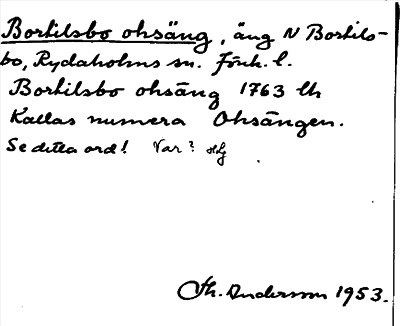 Bortilsbo ohsäng, äng N Bortils-
bo, Rydaholms sn. Jönk. l.
Bortilsbo ohsäng 1763 Lh
Kallas numera Ohsängen.
Se detta ord! Var?
Th. Andersson 1953.